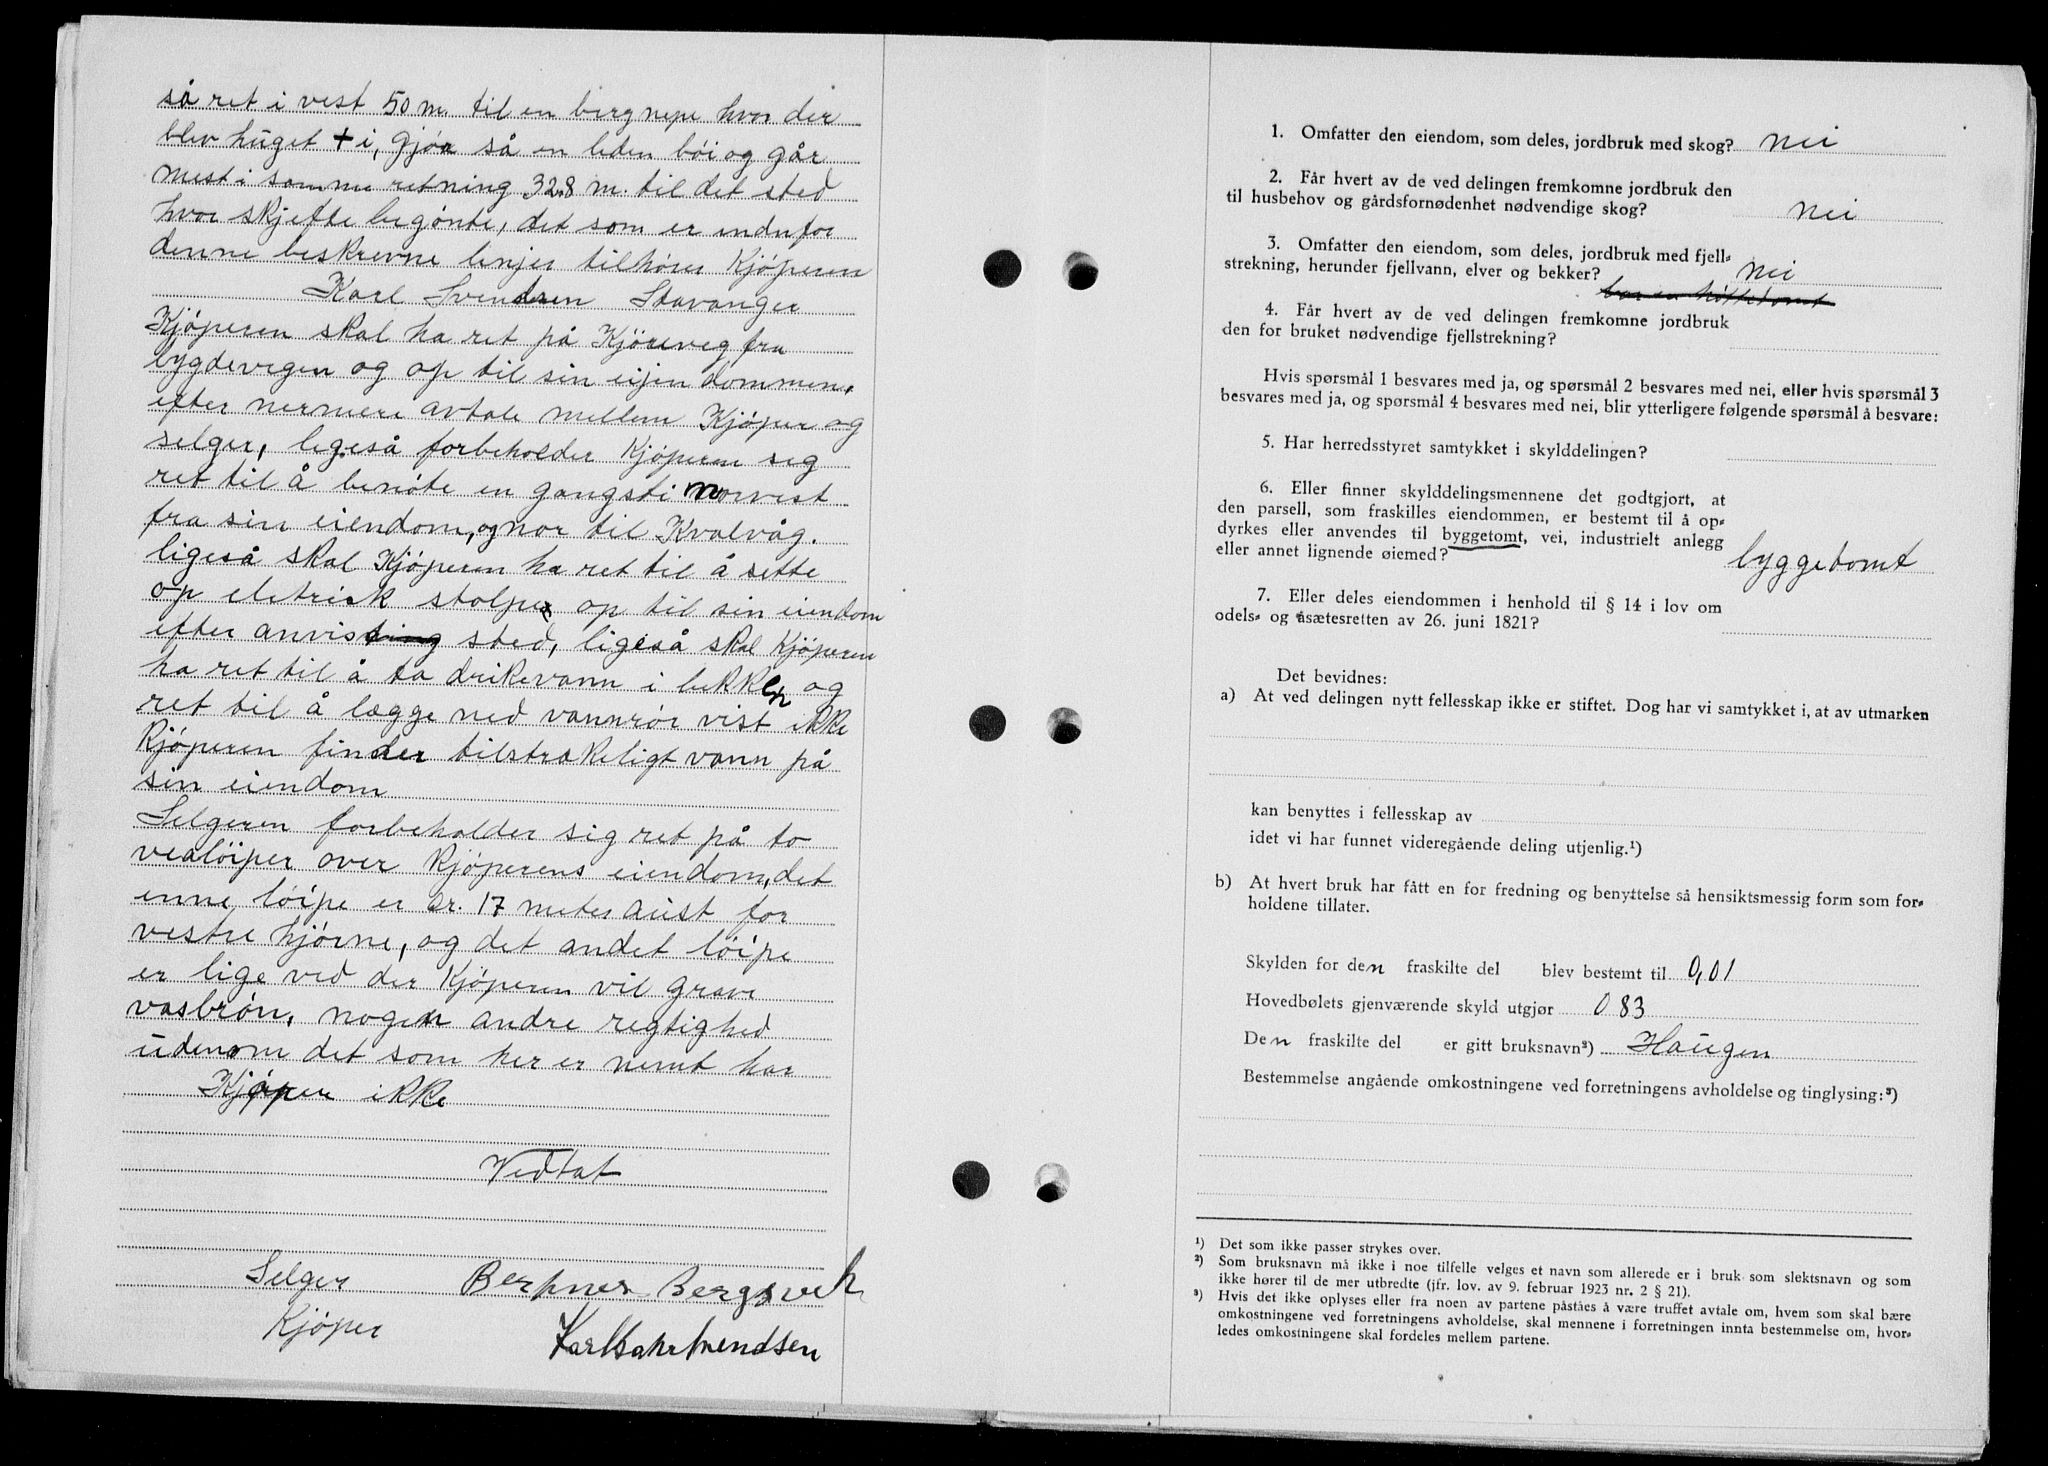 så ret i vest 50 m til en bergnepe hvor der
blev huget + i, gjør så en liden bøi og går
mest i somme retning 32.8 m. til det sted
hvor skjefte begónte, det som er indnfor
denne beskrevne linjer tilhører Kjóperen
Karl Svendsen Stavanger
Kjóperen skal ha ret på Kjöreveg fra
bygdevegen og op til sin eijendommen,
efter nermere avtale mellem Kjóper og
selger, ligeså forbeholder Kjóperen sig
ret til å benóte en gangsti norvest
fra sin eiendom, og nor til Kvalvåg.
ligeså skal Kjóperen ha ret til å sette
op eletrisk stolper op til sin eiendom
efter anvist sted, ligeså skal Kjóperen
ha ret til å ta drikevann i bekken og
ret til å lægge ned vannrór vist ikke
Kjóperen finder tilstrakeligt vann på
sin eiendom
Selgeren forbeholder sig ret på to
vealöiper over Kjóperens eiendom, det
enne löipe er cr. 17 meter aust for
vestre hjórne, og det andet löipe
er lige ved der Kjóperen vil grave
vasbrón, nogen andre regtighed
udenom det som her er nemt har
Kjóper ikke
Vedtat
Selger Berhner Bergsvik
Kjóper Karl Svendsen
1. Omfatter den eiendom, som deles, jordbruk med skog? nei
2. Får hvert av de ved delingen fremkomne jordbruk den
til husbehov og gårdsfornødenhet nødvendige skog? nei
3. Omfatter den eiendom, som deles, jordbruk med fjell-
strekning, herunder fjellvann, elver og bekker? nei
4. Får hvert av de ved delingen fremkomne jordbruk
den for bruket nødvendige fjellstrekning?
Hvis spørsmål 1 besvares med ja, og spørsmål 2 besvares med nei, eller hvis spørsmål 3
besvares med ja, og spørsmål 4 besvares med nei, blir ytterligere følgende spørsmål å besvare:
5. Har herredsstyret samtykket i skylddelingen?
6. Eller finner skylddelingsmennene det godtgjort, at
den parsell, som fraskilles eiendommen, er bestemt til å op-
dyrkes eller anvendes til byggetomt, vei, industrielt anlegg
eller annet lignende øiemed? byggetomt
7. Eller deles eiendommen i henhold til § 14 i lov om
odels- og åsætesretten av 26. juni 1821?
Det bevidnes:
a) At ved delingen nytt fellesskap ikke er stiftet. Dog har vi samtykket i, at av utmarken
kan benyttes i fellesskap av
idet vi har funnet videregående deling utjenlig.¹)
b) At hvert bruk har fått en for fredning og benyttelse så hensiktsmessig form som for-
holdene tillater.
Skylden for den fraskilte del blev bestemt til 0,01
Hovedbølets gjenværende skyld utgjør 0 83
Den fraskilte del er gitt bruksnavn²) Haugen
Bestemmelse angående omkostningene ved forretningens avholdelse og tinglysing:³)
¹) Det som ikke passer strykes over.
²) Som bruksnavn må ikke i noe tilfelle velges et navn som allerede er i bruk som slektsnavn og som
ikke hører til de mer utbredte (jfr. lov. av 9. februar 1923 nr. 2 § 21).
³) Hvis det ikke oplyses eller fra noen av partene påståes å være truffet avtale om, hvem som skal bære
omkostningene ved forretningens avholdelse, skal mennene i forretningen innta bestemmelse om, hvor-
ledes omkostningene skal fordeles mellem partene.